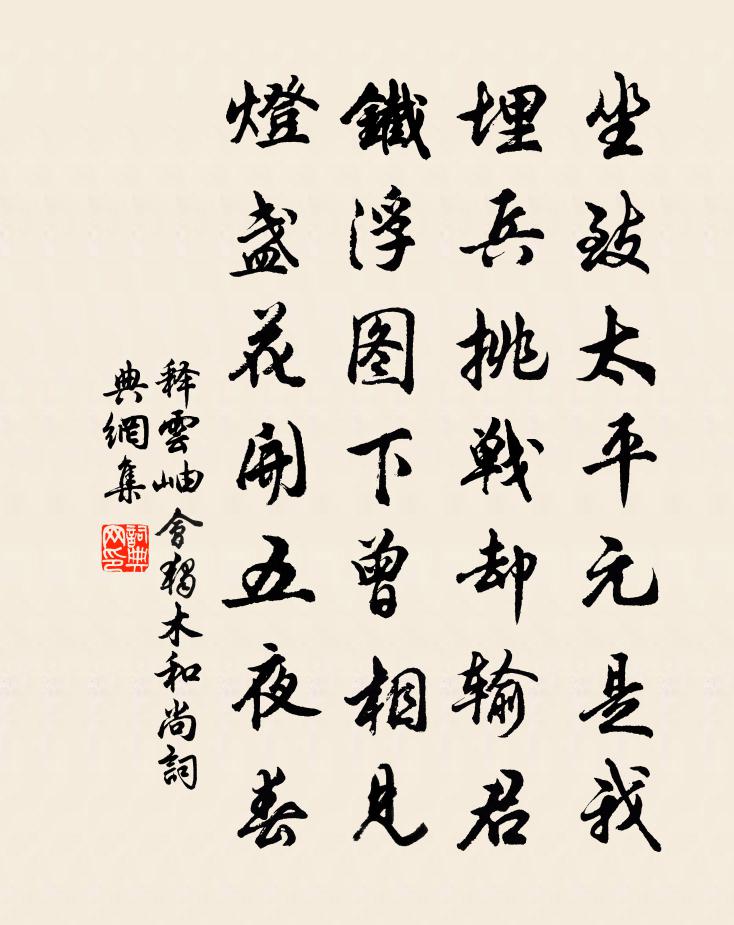 坐致太平元是我
埋兵挑戦却输君
鐵浮图下曾相見
燈盏花開五夜春
释雲岫會獨木和尚詞
典網集
詞典
网印